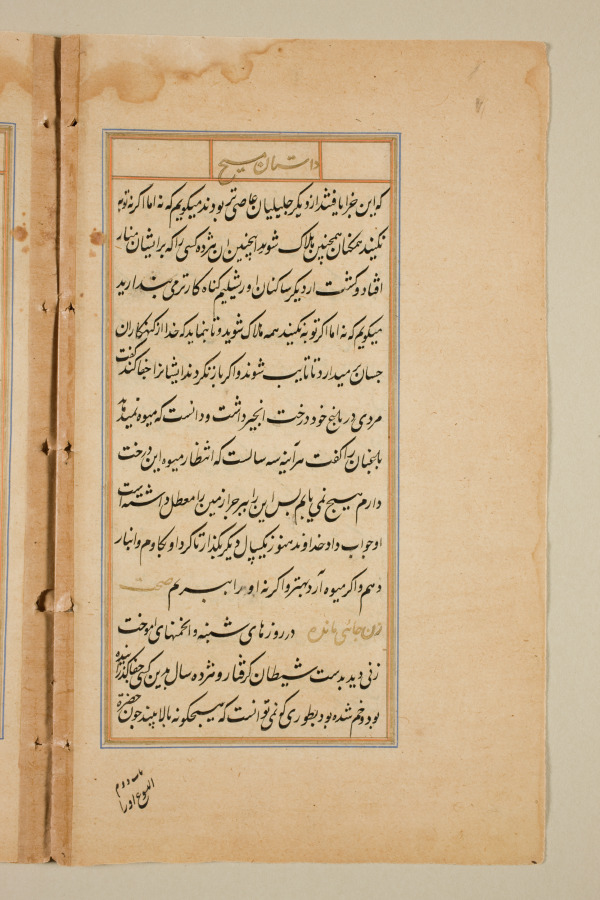 داستان مسیح
که این جزا یافتند از دیگر جلیلیان عاصی تر بودند میکویم که نه اما اکر نه توبه
نکنید همکنان همچنین هلاک شوید همچنین ان هژده کسی را که بر ایشان منار
افتاد و کشت از دیگر ساکنان اورشلیم کناه کارتر می پندارید
میکویم که نه اما اکر توبه نکنید همه هلاک شوید و تا بنماید که خدا از کنهکاران
جسان میدارد تا تایب شوند و اکر باز نکردند ایشانرا جفا کند کفت
مردی در باغ خود درخت انجیر داشت و دانست که میوه نمیدهد
باغبان را کفت هرآینه سه سالست که انتظار میوه این درخت
دارم هیچ نمی یابم پس این را ببر چرا زمین را معطل داشته است
او جواب داد خداوند هنوز یکسال دیگر بگذار تا کرد او بکاوم و انبار
دهم و اکر میوه آرد بهتر و اکر نه او را ببرم صحت
زن جائی مانده در روزهای شنبه و انجمنهای اموخت
زنی دید بدست شیطان کرفتار و هژده سال بدین کسی جفا کذرانیده
بود و خم شده بود بطوری که نمی توانست که هیچکونه بالا بیند چون حضرة
باب دوم
الیسوع اورا